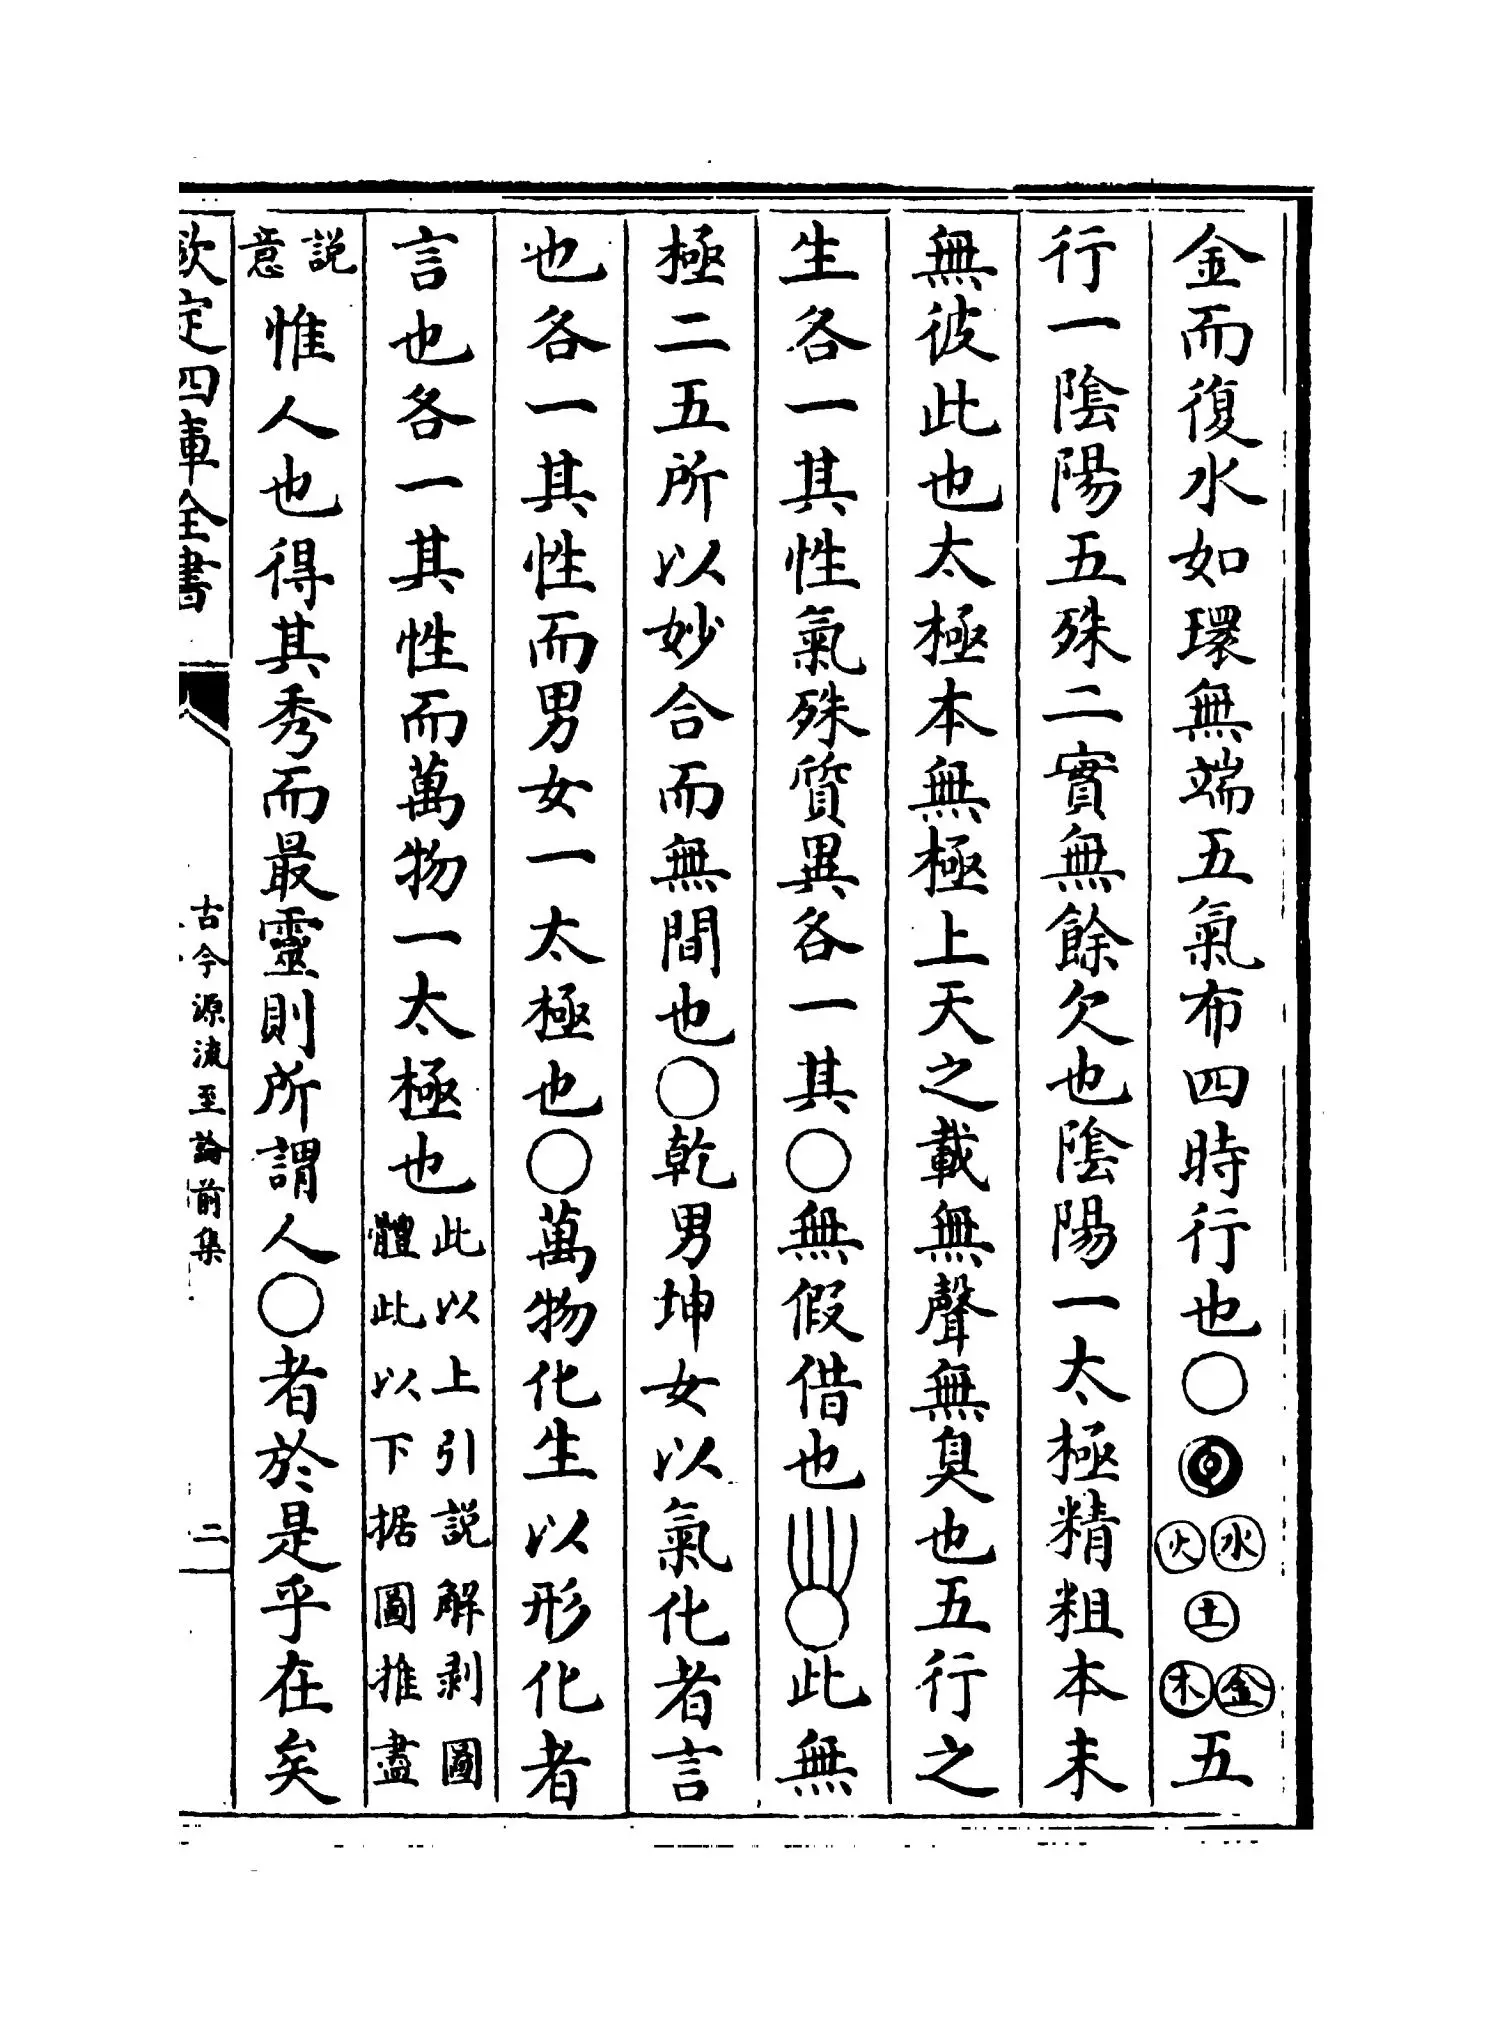 金而復水如環無端五氣布四時行也〇◎水火土金木五
行一陰陽五殊二實無餘欠也陰陽一太極精粗本末
無彼此也太極本無極上天之載無聲無臭也五行之
生各一其性氣殊質異各一其〇無假借也〇此無
極二五所以妙合而無間也〇乾男坤女以氣化者言
也各一其性而男女一太極也〇萬物化生以形化者
言也各一其性而萬物一太極也此以上引説解剥圖體此以下据圖推盡
説意惟人也得其秀而最靈則所謂人〇者於是乎在矣
欽定四庫全書
古今源流至論前集
二